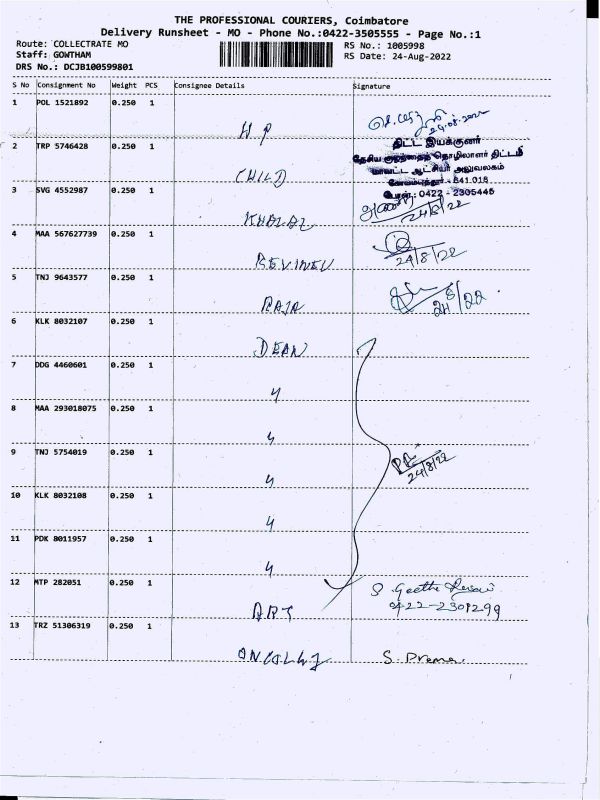 THE PROFESSIONAL COURIERS, Coimbatore
Delivery Runsheet - MO - Phone No.:0422-3505555 - Page No.:1
Route: COLLECTRATE MO
RS No.: 1005998
Staff: GOWTHAM
RS Date: 24-Aug-2022
DRS No.: DCJB100599801
S No Consignment No Weight PCS Consignee Details Signature
1 POL 1521892 0.250 1
H P 24.08.2022
2 TRP 5746428 0.250 1
திட்ட இயக்குனர்
தேசிய குழந்தைத் தொழிலாளர் திட்டம்
CHILD மாவட்ட ஆட்சியர் அலுவலகம்
3 SVG 4552987 0.250 1
கோயமுத்தூர் - 641 018
போன் : 0422 - 2305445
24/8/22
4 MAA 567627739 0.250 1
24/8/22
5 TNJ 9643577 0.250 1
RAJA 24/8/22
6 KLK 8032107 0.250 1
DEAN
7 DDG 4460601 0.250 1
4
8 MAA 293018075 0.250 1
4
9 TNJ 5754019 0.250 1
4 24/8/22
10 KLK 8032108 0.250 1
4
11 PDK 8011957 0.250 1
4
12 MTP 282051 0.250 1
S Geetha
ART 0422-2301299
13 TRZ 51306319 0.250 1
S. Prema